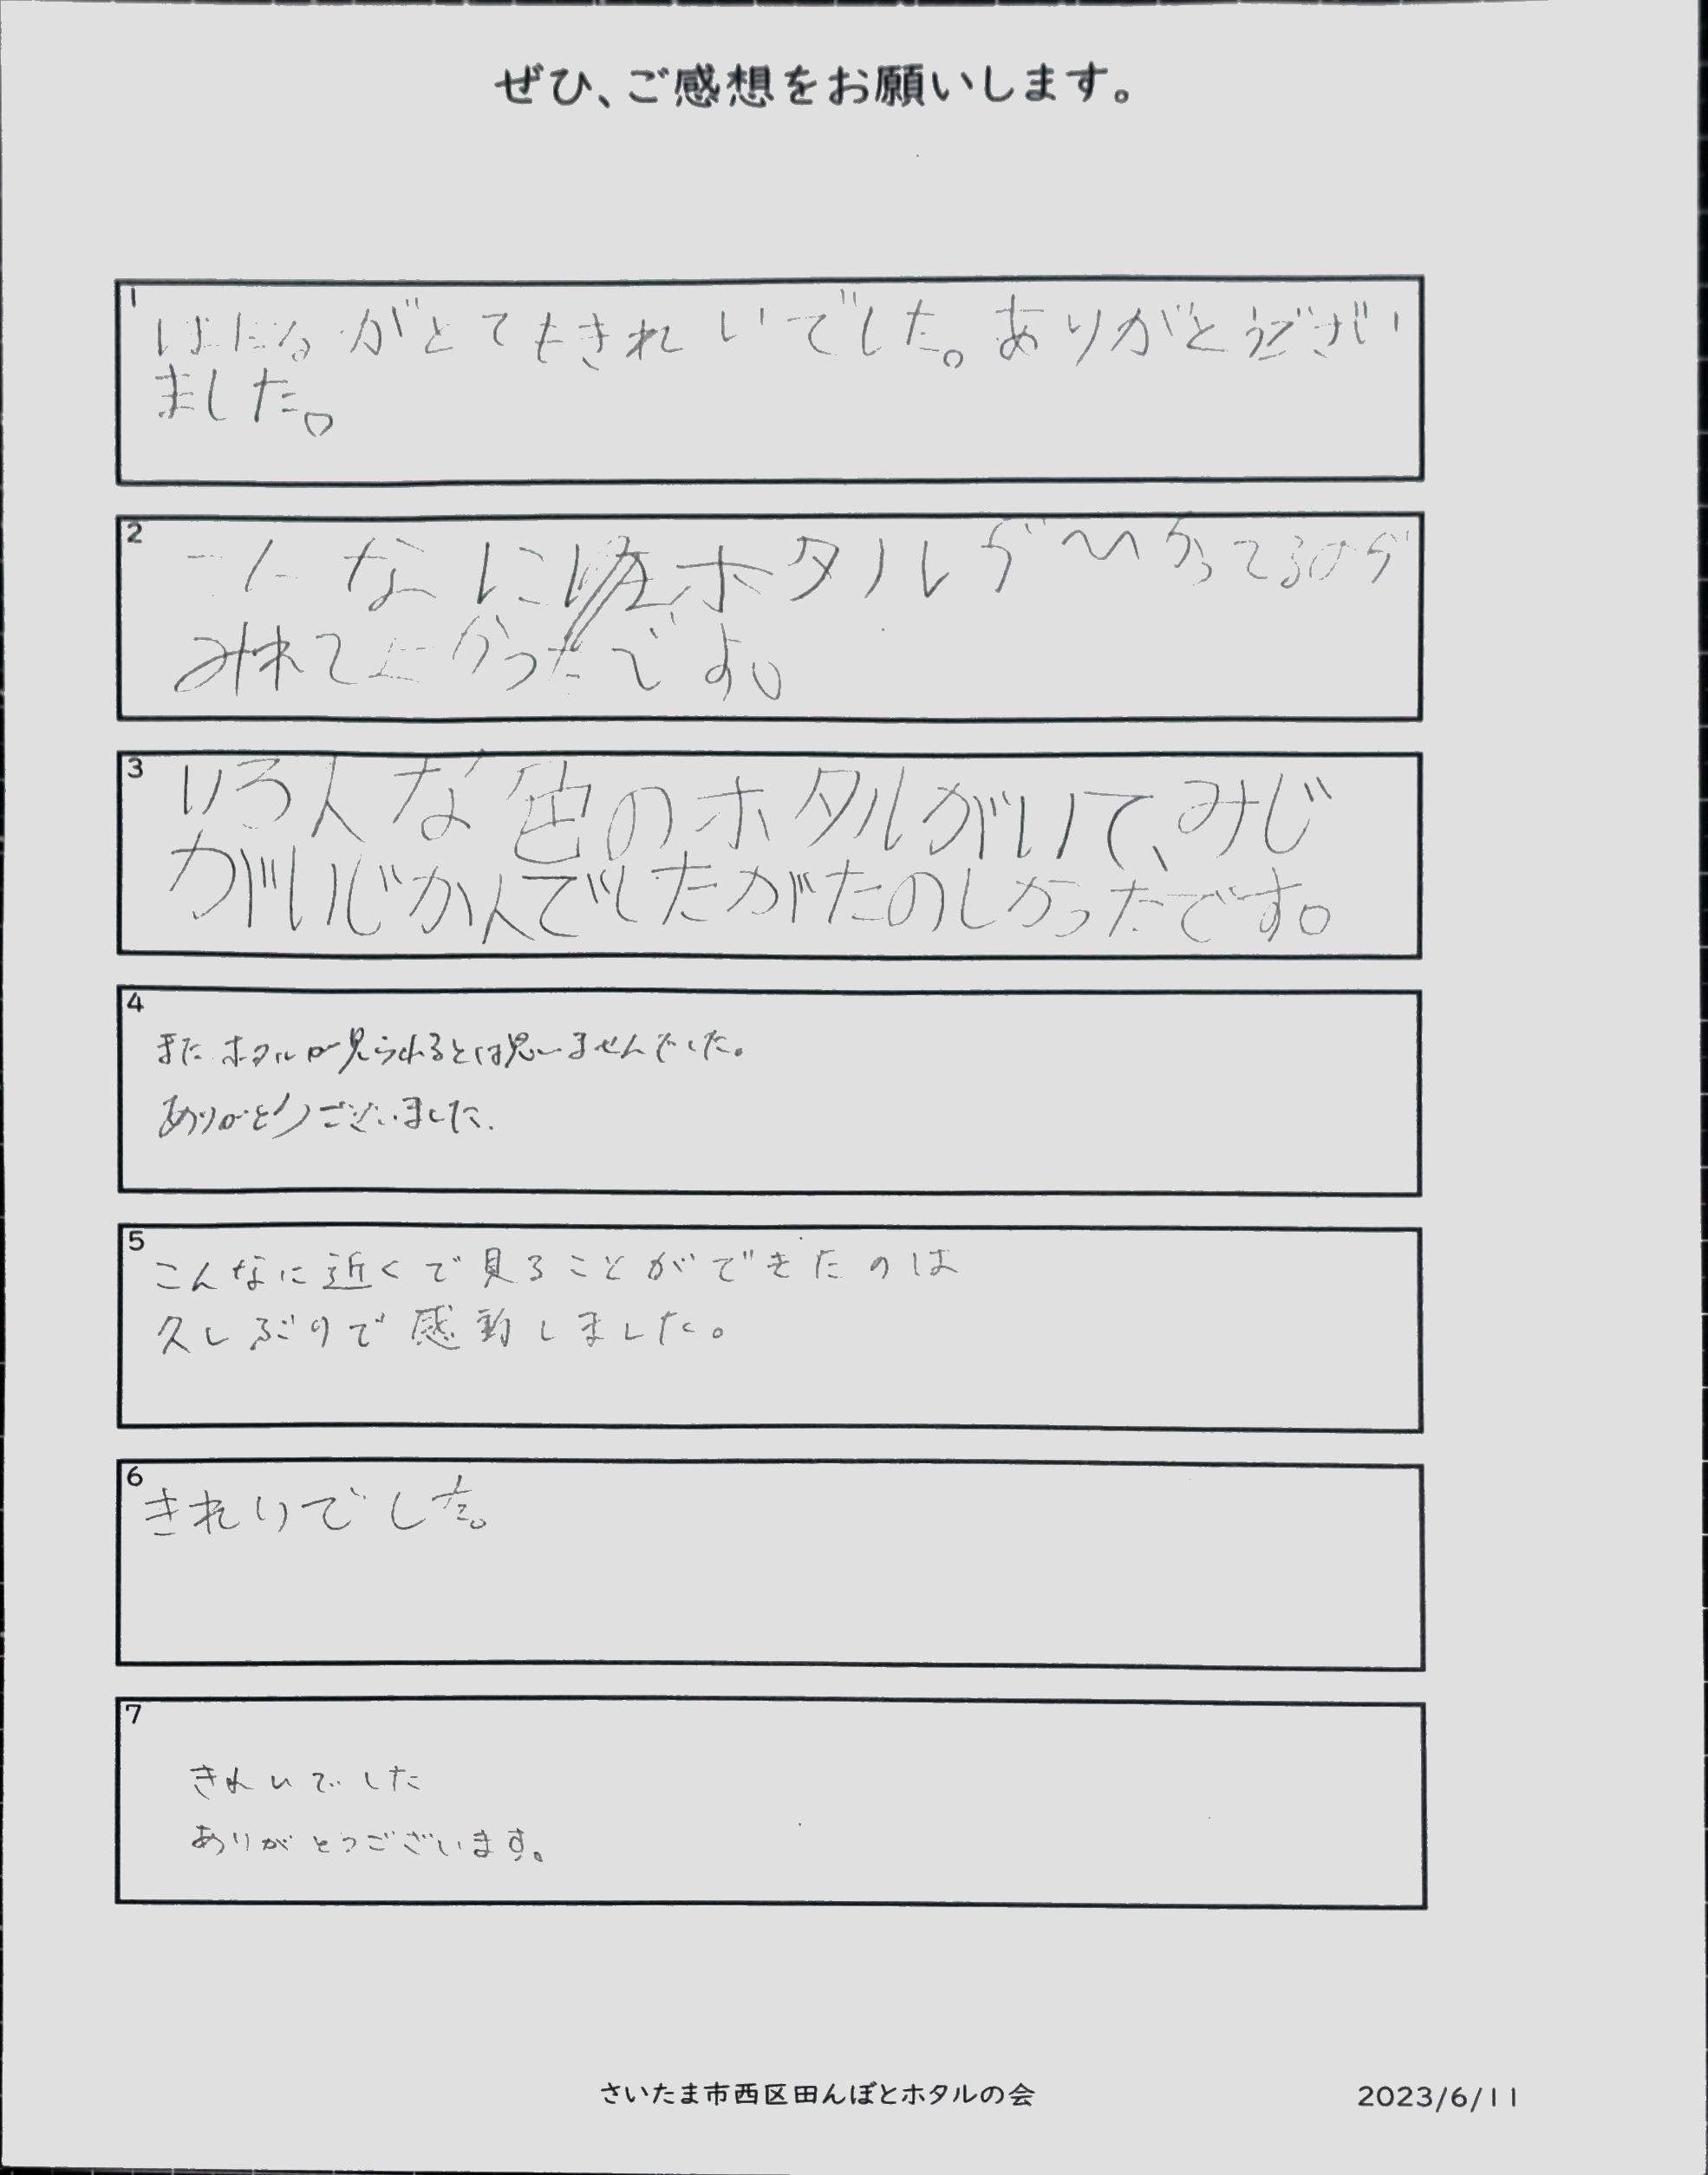 ぜひ、ご感想をお願いします。
1
ほたるがとてもきれいでした。ありがとうござい
ました。
2
こんなにホタルがいかってるのが
みれてよかったです。
3
いろんな色のホタルがいて、みじ
がいじかんでしたがたのしかったです。
4
またホタルが見られるとは思いませんでした。
ありがとうございました.
5
こんなに近くで見ることができたのは
久しぶりで感動しました。
6
きれいでした。
7
きれいでした
ありがとうございます。
さいたま市西区田んぼとホタルの会
2023/6/11